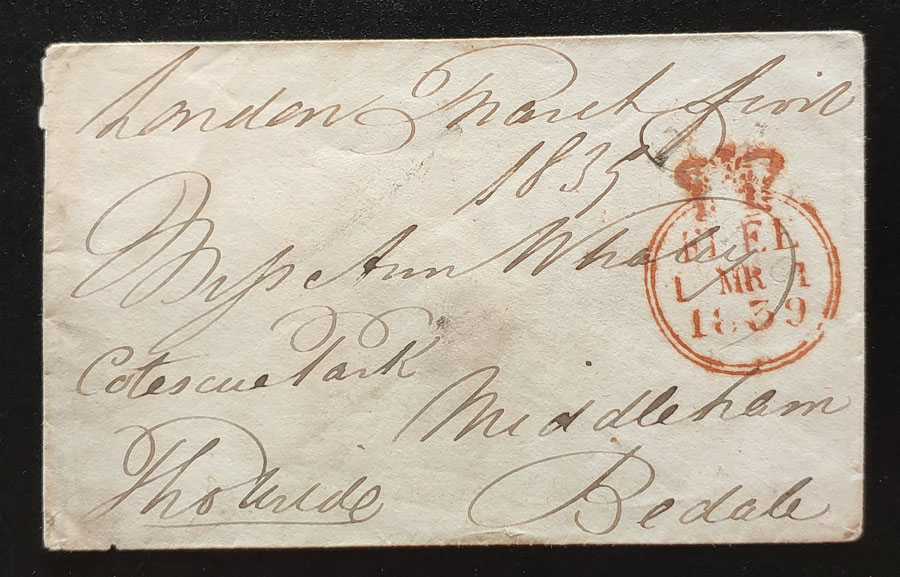 London March first
1839
Miss Ann Whaley
Cotescue Park
Middleham
Bedale
EL
1 MR 1
1839